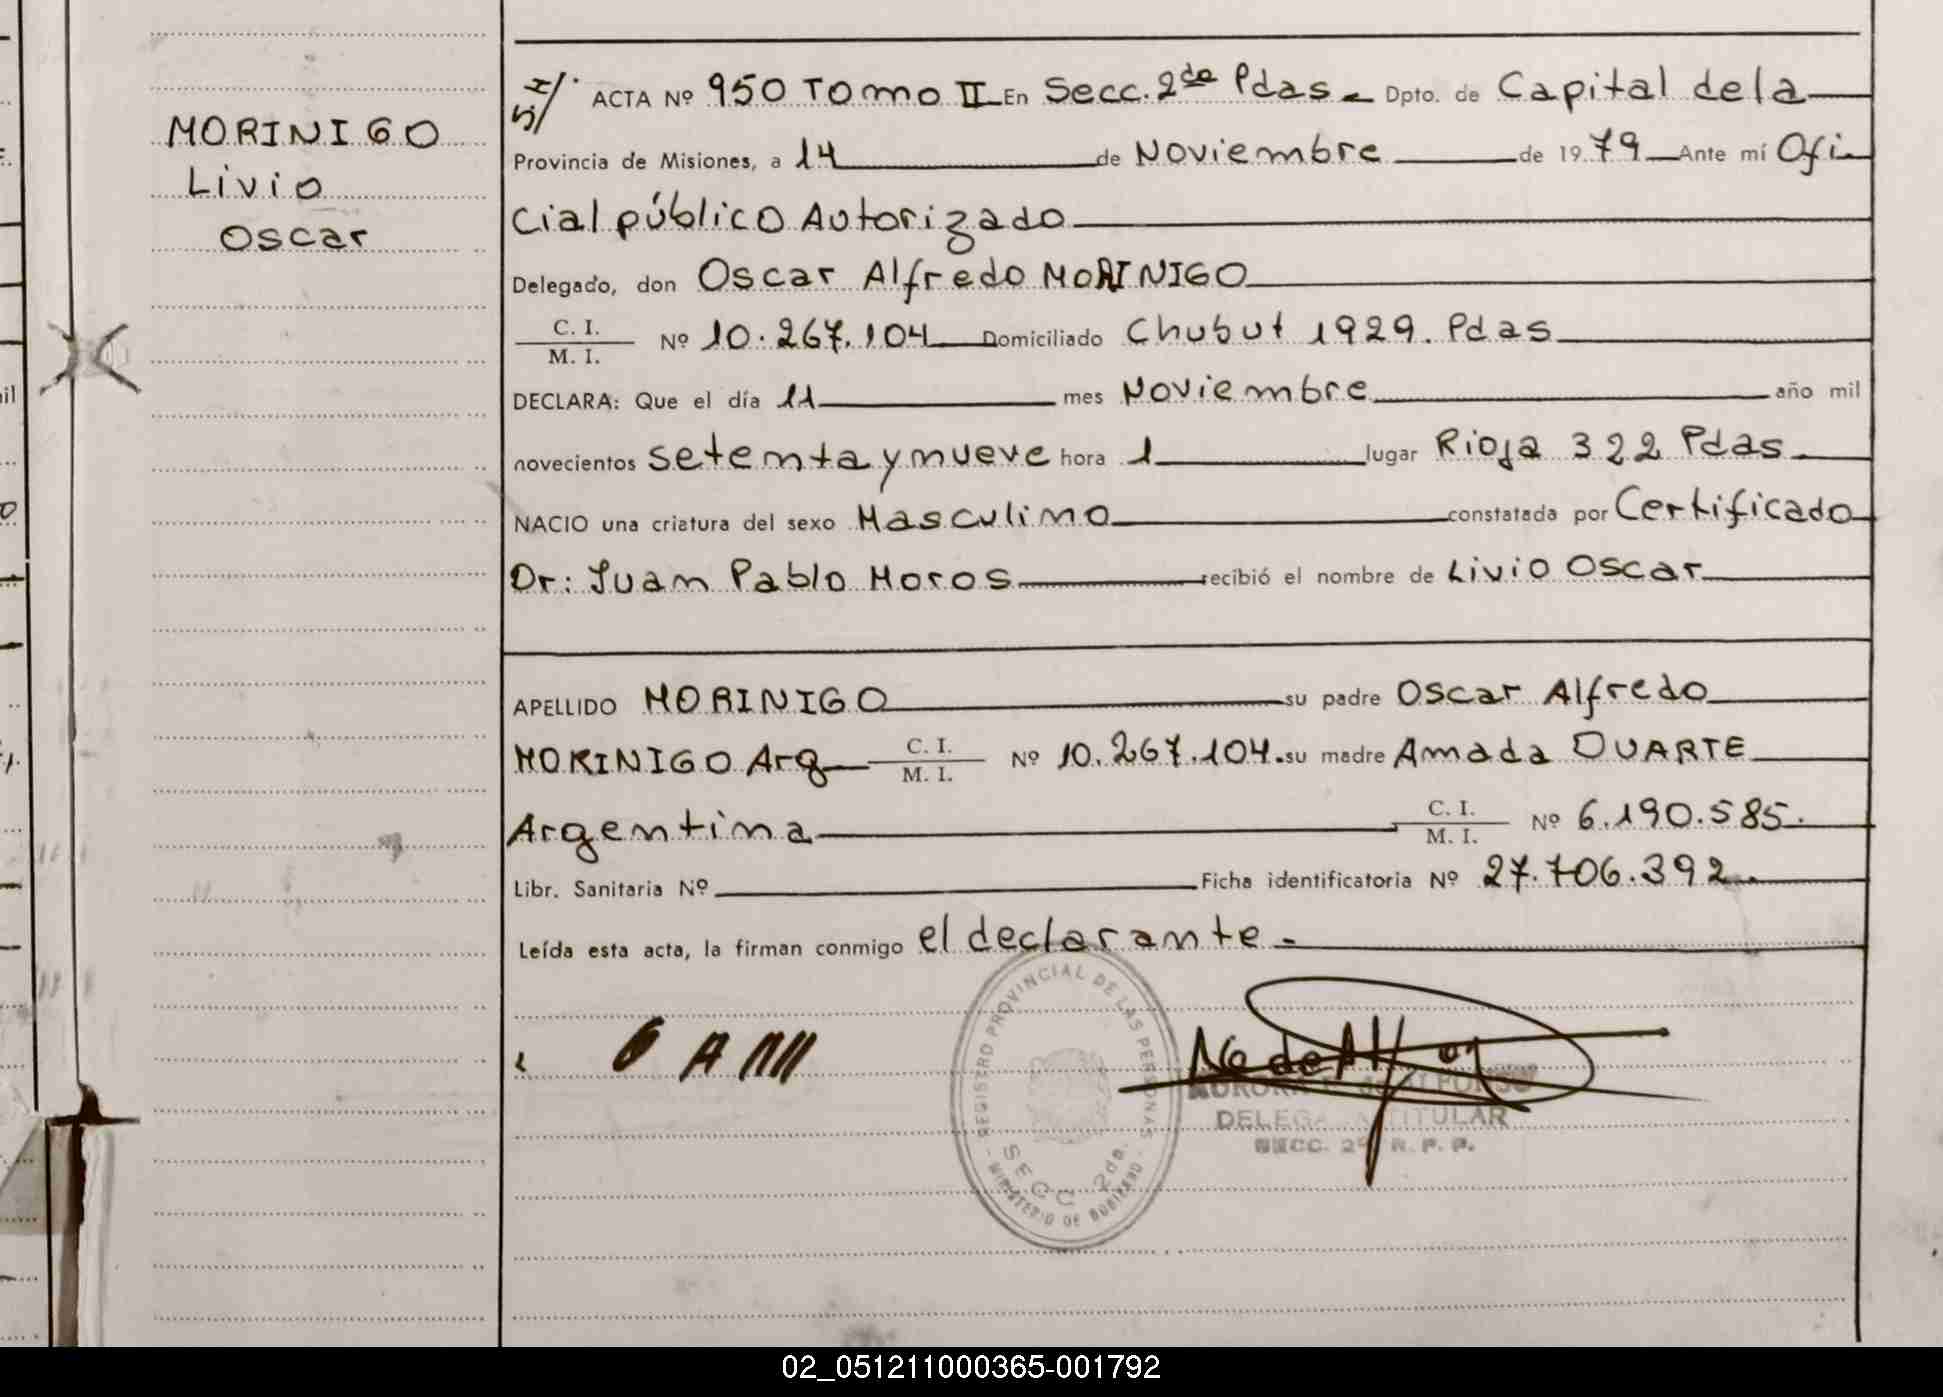 MORINIGO
Livio
Oscar
ACTA Nº 950 Tomo II En Secc. 2da Pdas Dpto. de Capital de la
Provincia de Misiones, a 14 de Noviembre de 1979 Ante mí Ofi
cial público Autorizado
Delegado, don Oscar Alfredo MORINIGO
C. I.
M. I. Nº 10.267.104 Domiciliado Chubut 1929. Pdas
DECLARA: Que el día 11 mes Noviembre año mil
novecientos setenta y nueve hora 1 lugar Rioja 322 Pdas.
NACIO una criatura del sexo Masculino constatada por Certificado
Dr: Juan Pablo Moros recibió el nombre de Livio Oscar
APELLIDO MORINIGO su padre Oscar Alfredo
MORINIGO Arg C. I. M. I. Nº 10.267.104. su madre Amada DUARTE
Argentina C. I. M. I. Nº 6.190.585.
Libr. Sanitaria Nº Ficha identificatoria Nº 27.706.392.
Leída esta acta, la firman conmigo el declarante.
REGISTRO PROVINCIAL DE LAS PERSONAS
SECC 2da.
MINISTERIO DE GOBIERNO
de ALFONSO
DELEGA TITULAR
SECC. 2ª R. P. P.
02_051211000365-001792